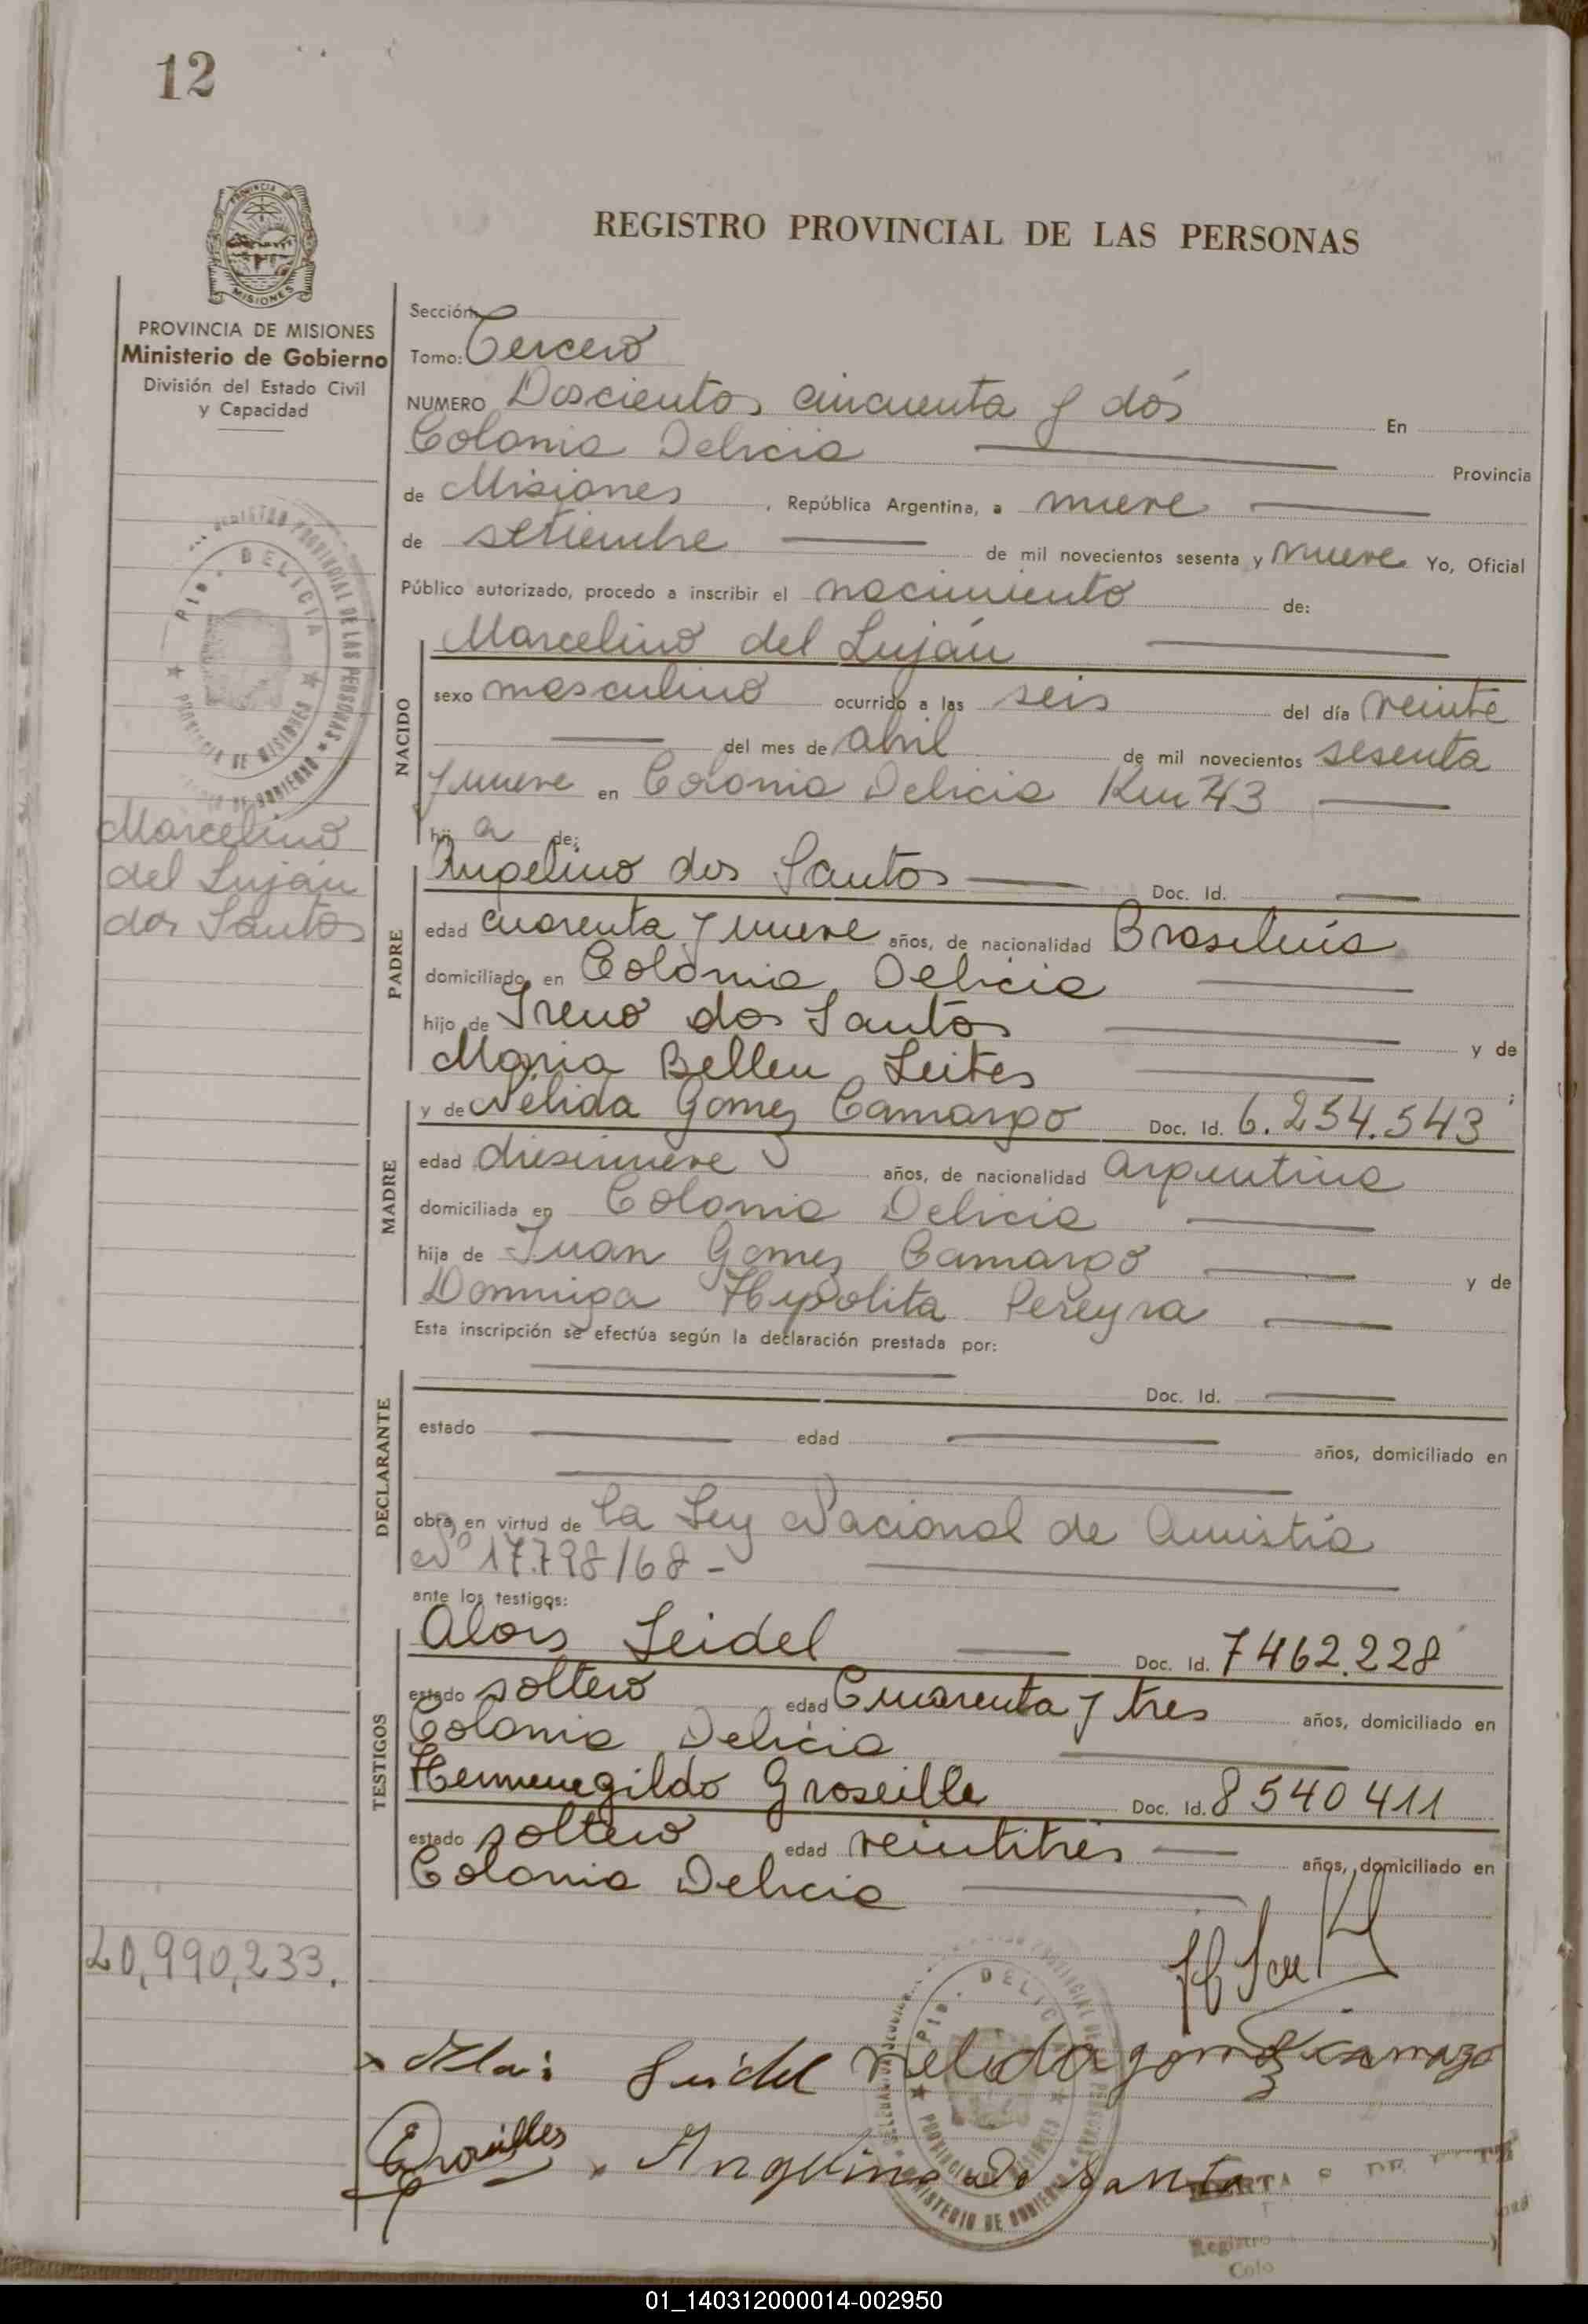 12
REGISTRO PROVINCIAL DE LAS PERSONAS
PROVINCIA DE
MISIONES
PROVINCIA DE MISIONES
Ministerio de Gobierno
División del Estado Civil
y Capacidad
Sección
Tomo: Tercero
NUMERO Doscientos cincuenta y dós En
Colonia Delicia Provincia
de Misiones, República Argentina, a nueve
de setiembre de mil novecientos sesenta y nueve Yo, Oficial
Público autorizado, procedo a inscribir el nacimiento de:
REGISTRO PROVINCIAL DE LAS PERSONAS
Pto. DELICIA
PROVINCIA DE MISIONES
Marcelino
del Luján
dos Santos
NACIDO
Marcelino del Luján
sexo masculino ocurrido a las seis del día veinte
del mes de abril de mil novecientos sesenta
y nueve en Colonia Delicia Km 43
hij a de:
PADRE
Angelino dos Santos Doc. Id.
edad cuarenta y nueve años, de nacionalidad Brasileña
domiciliado en Colonia Delicia
hijo de Ireno dos Santos y de
Maria Bellen Leites
MADRE
y de Nélida Gomez Camargo Doc. Id. 6.254.543
edad diesinueve años, de nacionalidad argentina
domiciliada en Colonia Delicia
hija de Juan Gomez Camargo y de
Dominga Hipolita Pereyra
Esta inscripción se efectúa según la declaración prestada por:
DECLARANTE
Doc. Id.
estado edad años, domiciliado en
obra en virtud de La Ley Nacional de Amistía
Nº 17.798/68-
ante los testigos:
TESTIGOS
Alois Seidel Doc. Id. 7462.228
estado soltero edad Cuarenta y tres años, domiciliado en
Colonia Delicia
Hermenegildo Groseille Doc. Id. 8540411
estado soltero edad veintitrés años, domiciliado en
Colonia Delicia
20,990,233.
Seidel Nelida gomez camargo
Pto. DELICIA
PROVINCIA DE MISIONES
MINISTERIO DE GOBIERNO
Registro
Colo
01_140312000014-002950